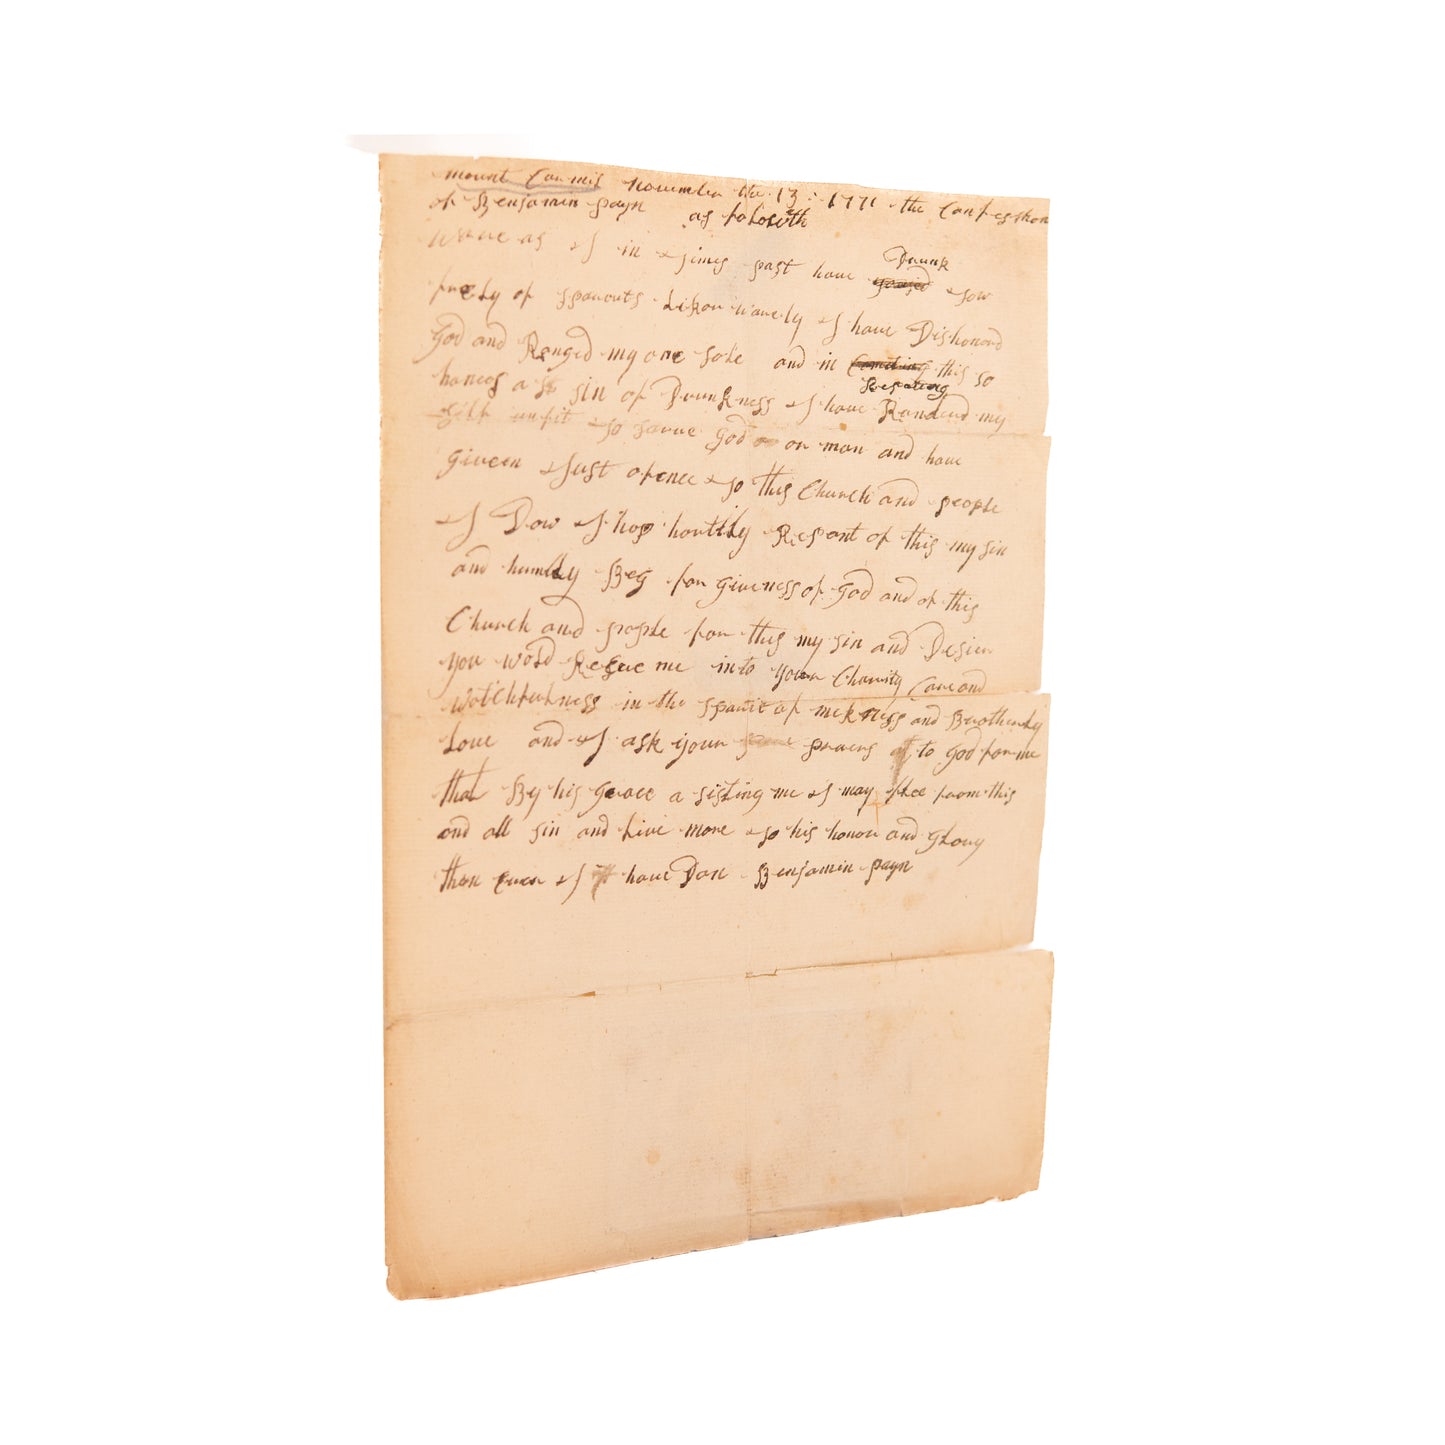 mount Carmil november the 13: 1771 the Confesshon
of Benjamin payn as foloweth
Wareas I in times past have Drunk tow
frely of sparuts Likor warely I have Dishonord
God and Ronged my one sole and in this so
haneos a sin of Drunkness I have Randerd my
self unfit to sarve God or man and have
giveen Just ofence to this Church and people
I Dow I hop hartily Repant of this my sin
and humbly Beg for giveness of God and of this
Church and people for this my sin and Desier
you wold Reseve me into your Charity Care and
Watchfulness in the sparit of mekness and Brotherly
Love and I ask your praers to God for me
that By his Grace a sisting me I may flee from this
and all sin and Live more to his honor and Glory
than Ever I have Don Benjamin payn